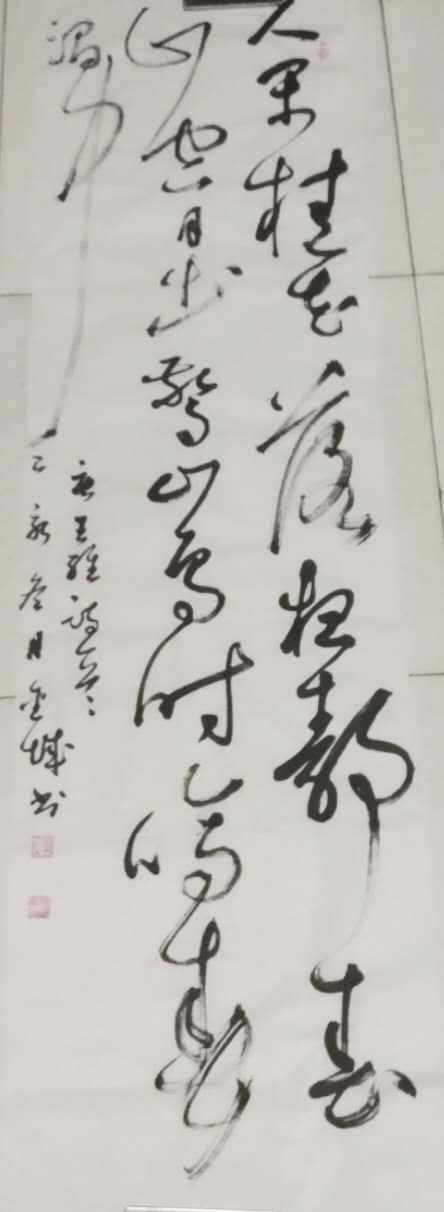 人閑桂花落夜靜春
山空月出驚山鳥時鳴春
澗中
唐王維詩
己亥月金城书